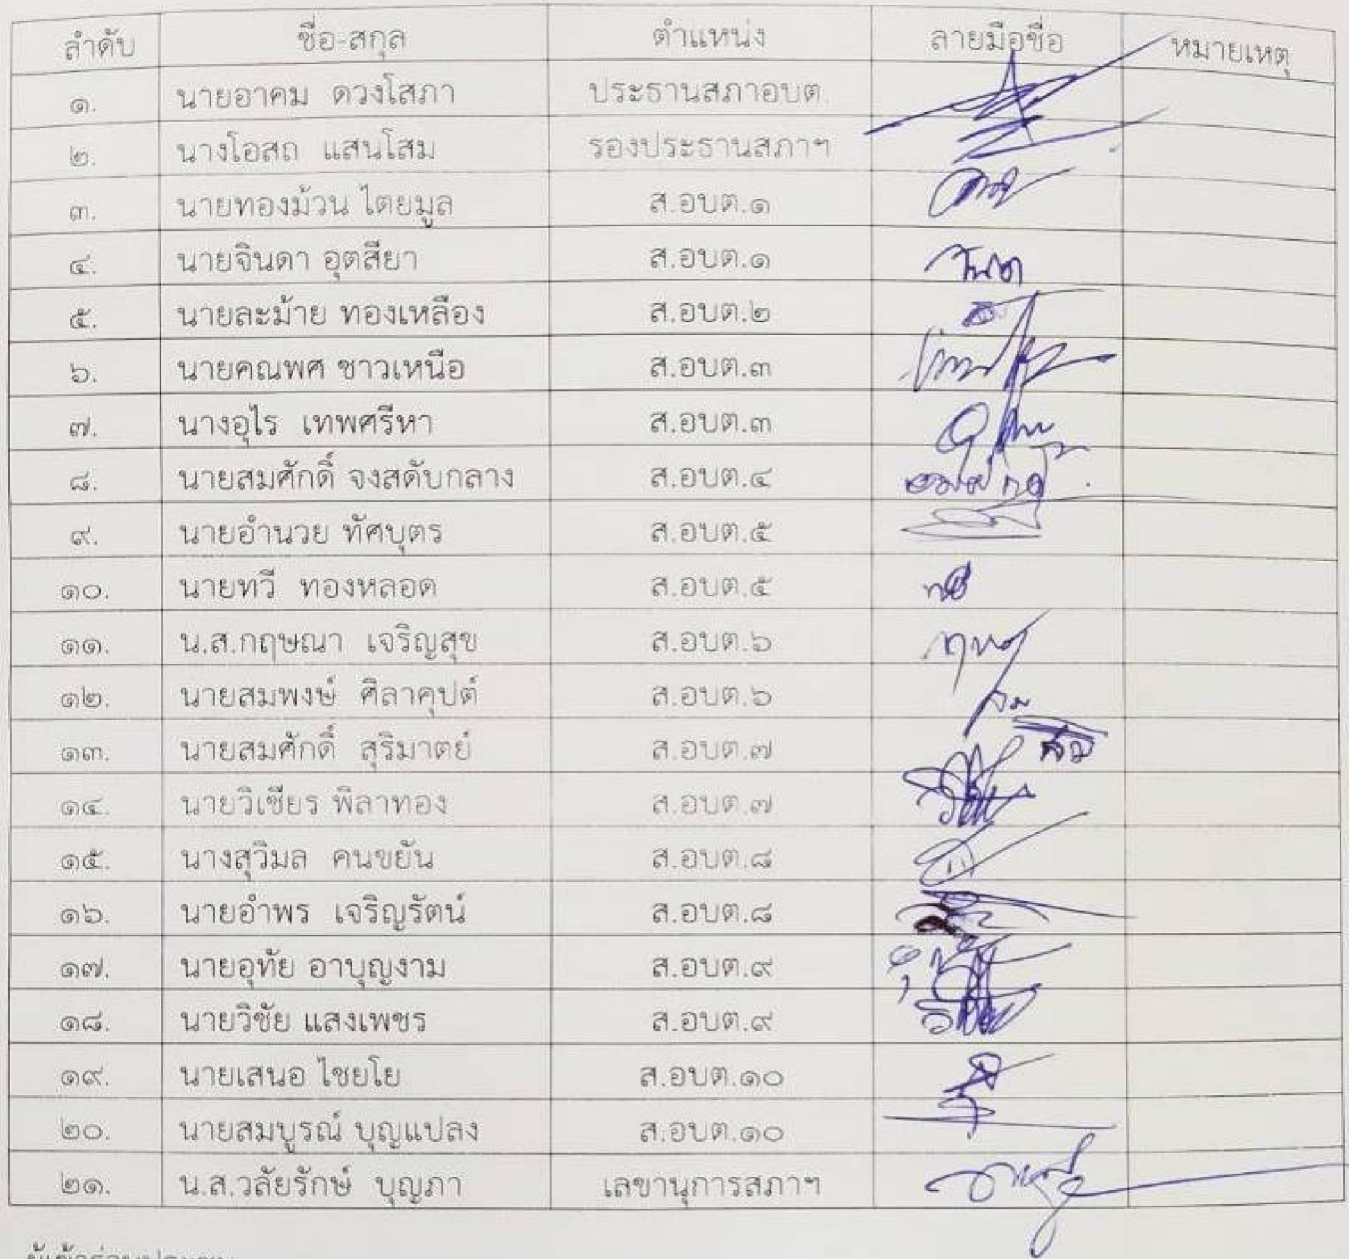 ลำดับ ชื่อ-สกุล ตำแหน่ง ลายมือชื่อ หมายเหตุ
๑. นายอาคม ดวงโสภา ประธานสภาอบต.
๒. นางโอสถ แสนโสม รองประธานสภาฯ
๓. นายทองม้วน ไตยมูล ส.อบต.๑
๔. นายจินดา อุตสียา ส.อบต.๑ จินดา
๕. นายละม้าย ทองเหลือง ส.อบต.๒
๖. นายคณพศ ชาวเหนือ ส.อบต.๓
๗. นางอุไร เทพศรีหา ส.อบต.๓
๘. นายสมศักดิ์ จงสดับกลาง ส.อบต.๔
๙. นายอำนวย ทัศบุตร ส.อบต.๕
๑๐. นายทวี ทองหลอด ส.อบต.๕
๑๑. น.ส.กฤษณา เจริญสุข ส.อบต.๖
๑๒. นายสมพงษ์ ศิลาคุปต์ ส.อบต.๖
๑๓. นายสมศักดิ์ สุริมาตย์ ส.อบต.๗
๑๔. นายวิเชียร พิลาทอง ส.อบต.๗
๑๕. นางสุวิมล คนขยัน ส.อบต.๘
๑๖. นายอำพร เจริญรัตน์ ส.อบต.๘
๑๗. นายอุทัย อาบุญงาม ส.อบต.๙
๑๘. นายวิชัย แสงเพชร ส.อบต.๙
๑๙. นายเสนอ ไชยโย ส.อบต.๑๐
๒๐. นายสมบูรณ์ บุญแปลง ส.อบต.๑๐
๒๑. น.ส.วลัยรักษ์ บุญภา เลขานุการสภาฯ